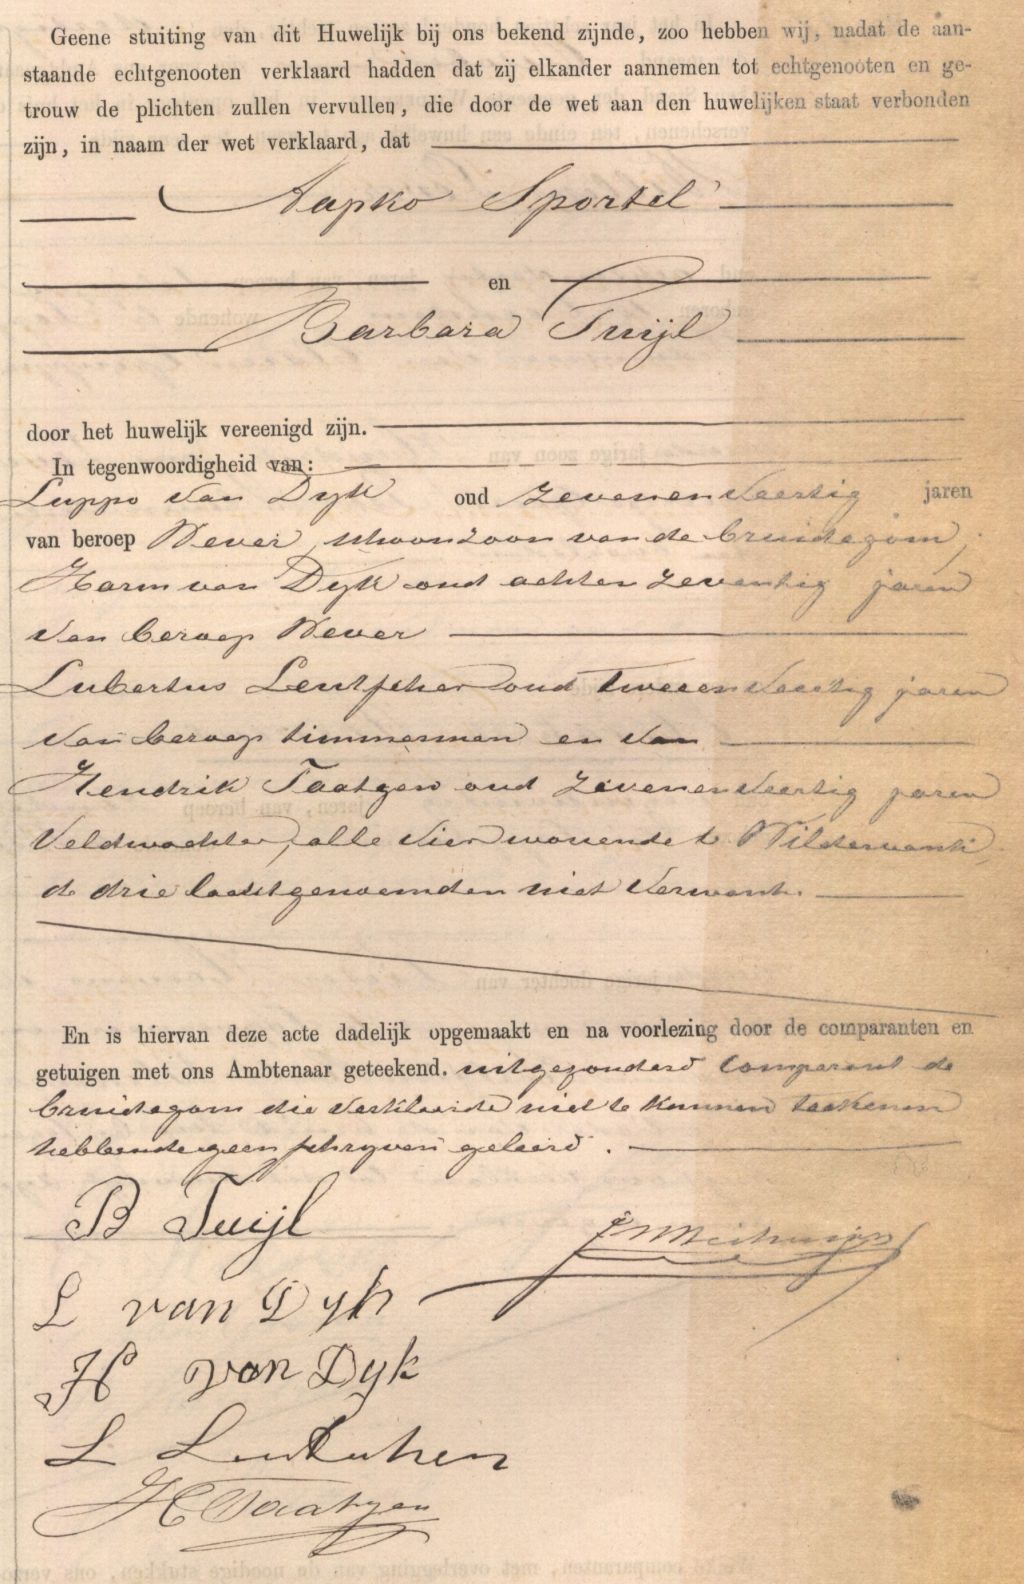 Geene stuiting van dit Huwelijk bij ons bekend zijnde, zoo hebben wij, nadat de aan-
staande echtgenooten verklaard hadden dat zij elkander aannemen tot echtgenooten en ge-
trouw de plichten zullen vervullen, die door de wet aan den huwelijken staat verbonden
zijn, in naam der wet verklaard, dat
Aapko Sportel
en
Barbara Tuijl
door het huwelijk vereenigd zijn.
In tegenwoordigheid van:
Luppo van Dyk oud zevenenveertig jaren
van beroep Wever, schoonzoon van de bruidegom,
Harm van Dyk oud achten zeventig jaren
van beroep Wever
Lubertus Leutscher oud tweeenveertig jaren
van beroep timmerman en van
Hendrik Taatgen oud zevenenveertig jaren
Veldwachter, alle vier wonende te Wildervank,
de drie laatstgenoemden niet verwant.
En is hiervan deze acte dadelijk opgemaakt en na voorlezing door de comparanten en
getuigen met ons Ambtenaar geteekend. uitgezonderd comparant de
bruidegom die verklaarde niet te kunnen teekenen
hebbende geen schryven geleerd.
B Tuijl
L van Dyk
H van Dyk
L Leutscher
H Taatgen